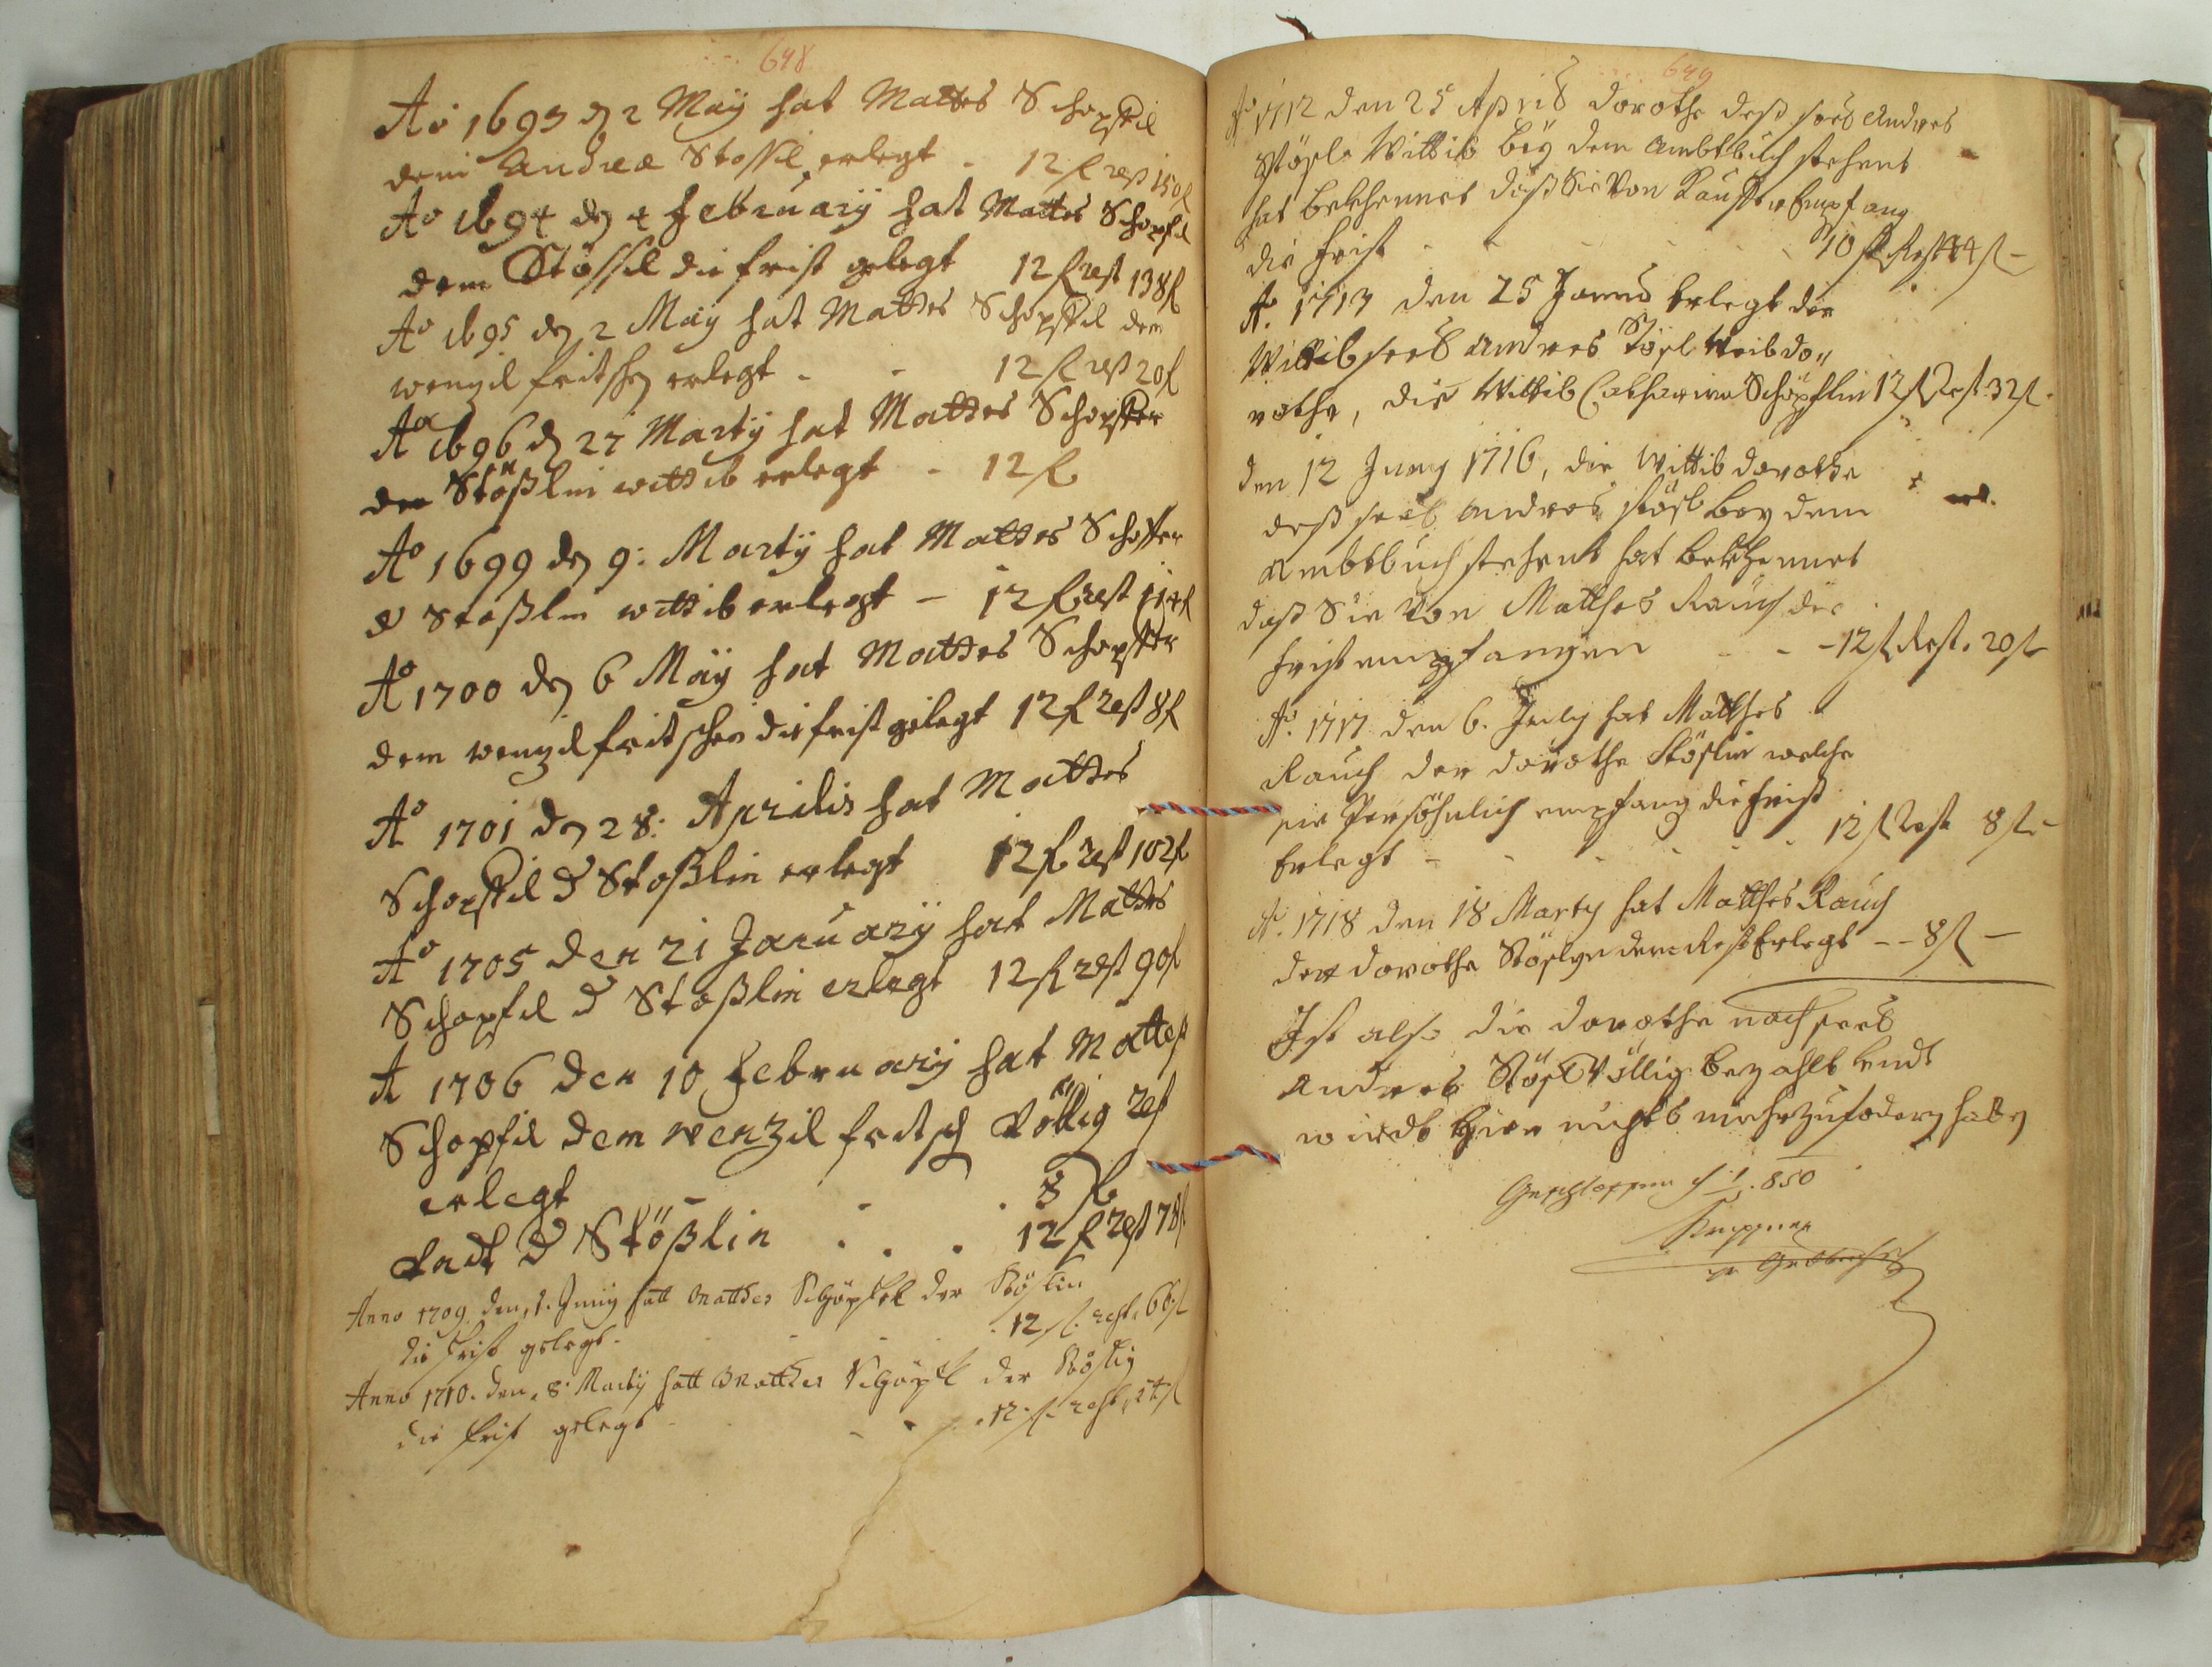 648
Ao 1693 den 2 Maÿ hat Mattes Schopffil
dem Andreæ Stossil erlegt - 12 f rest 150 f
Ao 1694 den 4 February hat Mattes Schopfil
dem Stössil die frist gelegt 12 f rest 138 f
Ao 1695 den 2 Maÿ hat Mattes Schopffil dem
wenzil fritschen erlegt - - 12 f rest 20 f
Ao 1696 den 27 Martÿ hat Mattes Schopffer
der Stößlin wittib erlegt - 12 f
Ao 1699 den 9: Martÿ hat Mattes Schoffer
d Stoßlin wittib erlegt - 12 f rest 114 f
Ao 1700 den 6 Maÿ hat Mattes Schopffer
dem wenzil fritschen die frist gelegt 12 f rest 8 f
Ao 1701 den 28: Aprilis hat Mattes
Schopffil d Stoßlin erlegt 12 f rest 102 f
Ao 1705 den 21 Januarÿ hat Mattes
Schopfil d Stoßlin erlegt 12 f rest 90 f
A 1706 den 10 Februarÿ hat Mattes
Schopfil dem wenzil fritsch Völlig rest
erlegt - - 8 f
Vndt d Stößlin . . . 12 f rest 78 f
Anno 1709. den, 1. Junÿ hatt Matthes Schöpfel der Stößlin
die Frist gelegt. - - 12 f. rest. 66 f
Anno 1710. den, 8. Martÿ hatt Matthes Schöpfl der Stößlin
die Frist gelegt - - 12. f. rest. 54 f
649
Ao 1712 den 25 April dorothe deß seel Andres
Stößls Wittib beÿ dem Ambtbuch stehent
hat bekhennet daß Sie Von Käuffer Empfang
die frist - - - 10 f Rest 44 f -
A. 1713 den 25 Erlegt der
Wittib seel Andres Stößl Weib do//
rothe, die Wittib Catharina Schöpflin 12 f Rest 32 f.
den 12 Juny 1716, die Wittib dorothe
deß seel Andres Stößl bey dem
Ambtbuch stehent hat bekhennet
daß Sie Von Matthes Rauch die
frist empfangen - - 12 f Rest. 20 f
Ao. 1717 den 6. July hat Matthes
Rauch der dorothe Stößlin welche
sie Persöhnlich empfang die frist
Erlegt - - - - 12 f Rest 8 f -
Ao. 1718 den 18 Marty hat Matthes Rauch
der dorothe Stößlyn den Rest Erlegt - - 8 f -
Ist also die dorothe nach seel
Andres Stößl Völlig bezahlt undt
wirdt hier nichts mehr zu fodern haben
850